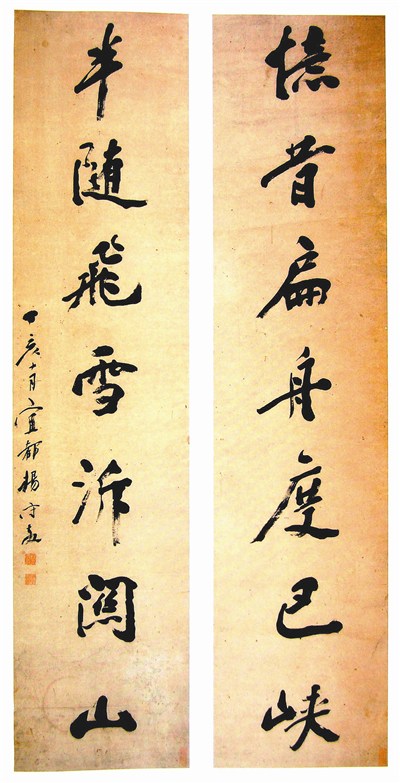 憶昔扁舟度巴峽
半随飛雪泝關山
丁亥十月宜都楊守敬